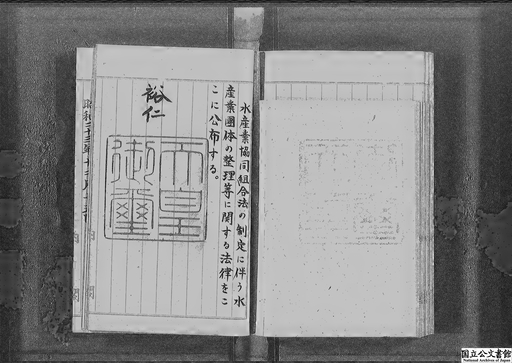 水産業協同組合法の制定に伴う水
産業団体の整理等に関する法律をこ
こに公布する。
裕仁
天皇
御璽
昭和二十三年十二月
内閣
国立公文書館
National Archives of Japan